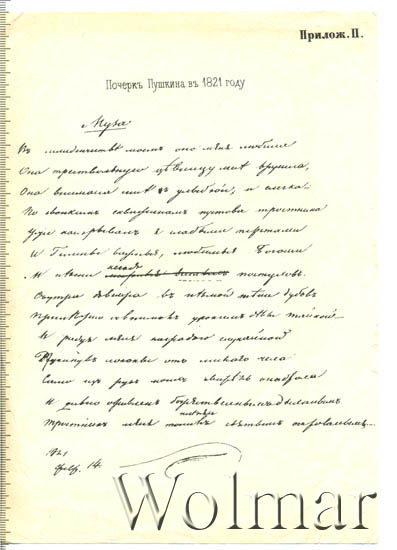 Прилож. II.
Почеркъ Пушкина въ 1821 году
Муза
Въ младенчествѣ моемъ она меня любила
Она цѣвницу мнѣ вручила,
Она внимала мнѣ съ улыбкой, и слегка
По звонкимъ скважинамъ пустова тростника
Уже наигрывалъ я слабыми перстами
И Гимны богами
И пѣсни пастуховъ.
Съ утра до вечера въ нѣмой тѣни дубовъ
Прилежно я внималъ урокамъ дѣвы тайной
И радуя меня наградою случайной
Откинувъ локоны отъ милаго чела
Сама изъ рукъ моихъ свирѣль она брала
оживленъ божественнымъ дыханьемъ
святымъ очарованьемъ
1821
февр. 14.
Wolmar